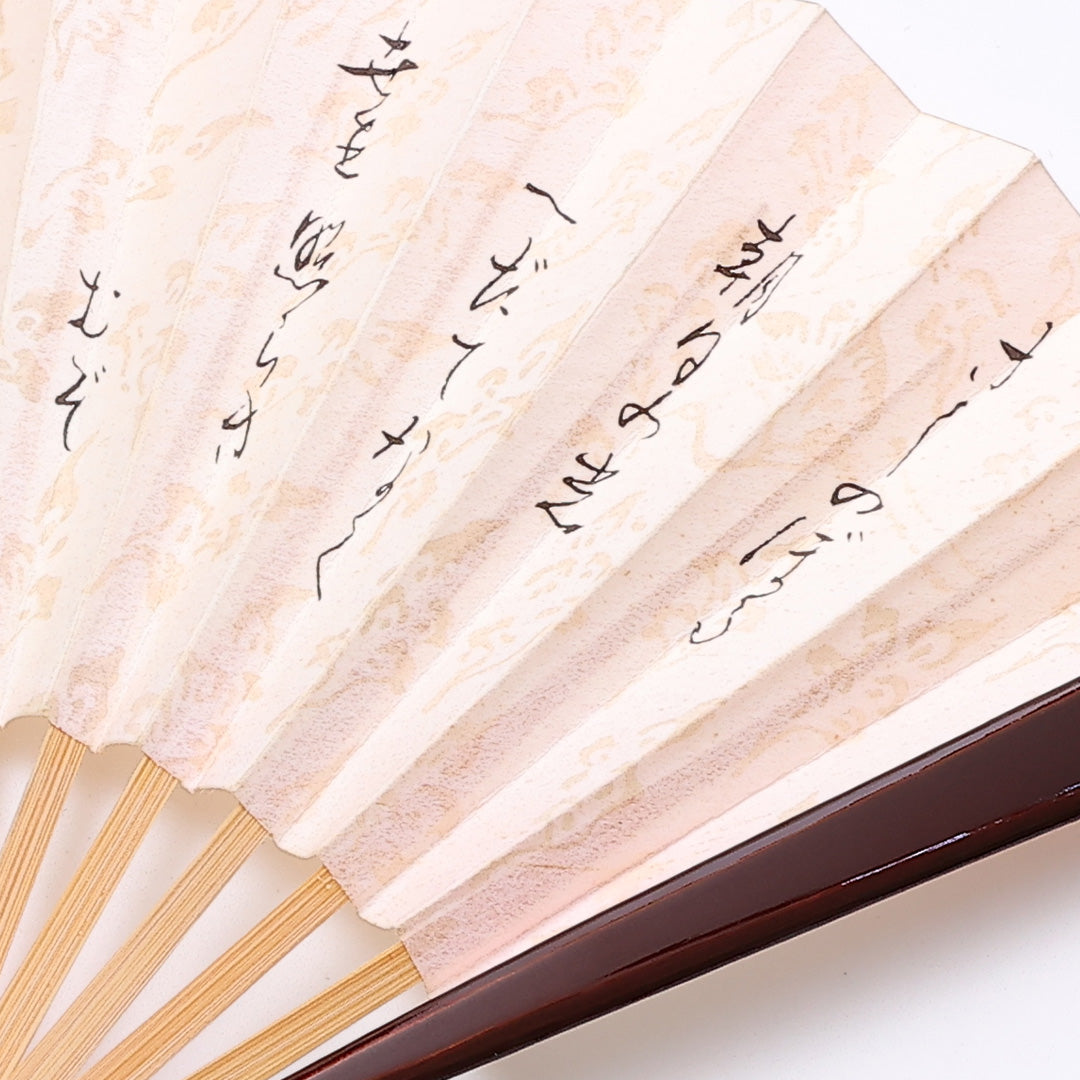 さしのぼる
朝日の光
へだてなく
世を照らさ
むぞ